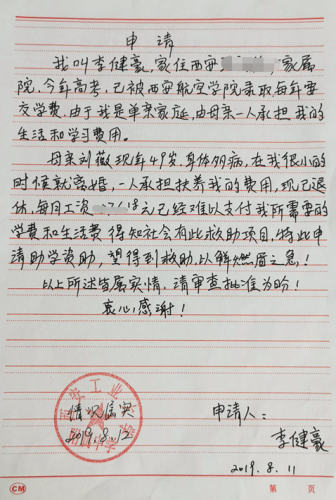 申请
我叫李健豪,家住西安 家属
院,今年高考,已被西安航空学院录取每年要
交学费.由于我是单亲家庭,由母亲一人承担我的
生活和学习费用。
母亲刘薇现年49岁.身体多病,在我很小的
时候就离婚,一人承担扶养我的费用,现已退
休,每月工资 元已经难以支付我所需要的
学费和生活费 得知社会有此救助项目,特此申
请助学资助,望得到救助,以解燃眉之急!
以上所述皆属实情,请审查批准为盼!
衷心感谢!
情况属实
2019.8.12
申请人:
李健豪
2019.8.11
CM
第 页